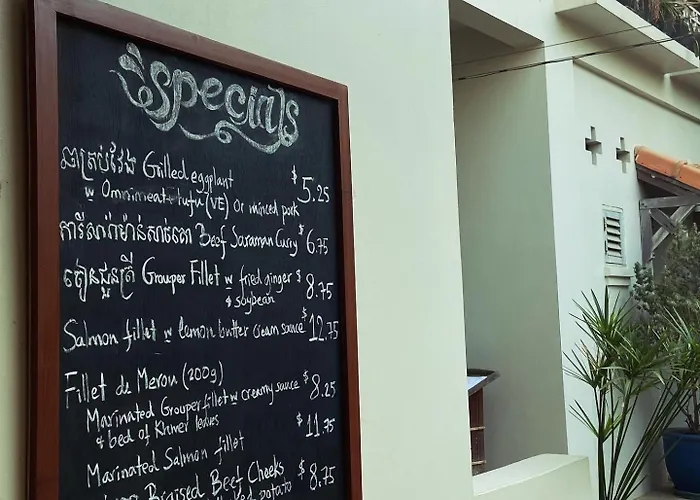 Specials
ឆាត្រប់វែង Grilled eggplant $5.25
w Omnimeat + tufu (VE) Or minced pork
ការីសារ៉ាម៉ាន់សាច់គោ Beef Saraman Curry $6.75
ជៀនជួនត្រី Grouper Fillet w fried ginger $8.75
& soybean
Salmon fillet w lemon butter cream sauce $12.75
Fillet de Merou (200g)
Marinated Grouper fillet w creamy sauce $8.25
& bed of Khmer leaves $11.75
Marinated Salmon fillet
Braised Beef Cheeks $8.75
potato